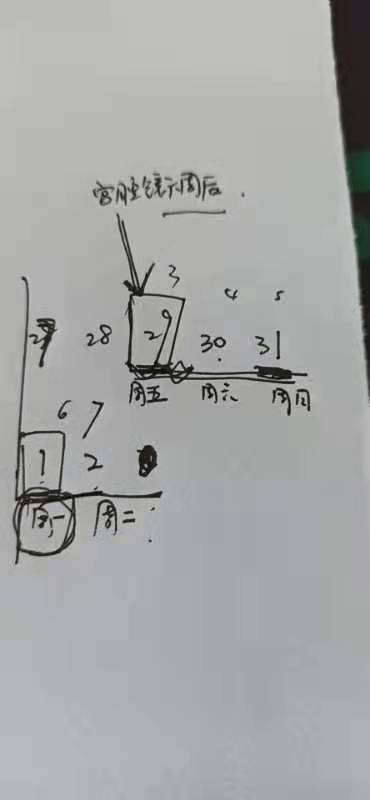 宫腔镜六周后.
3 4 5
27 28 29 30 31
周五 周六 周日
6 7
1 2
周一 周二